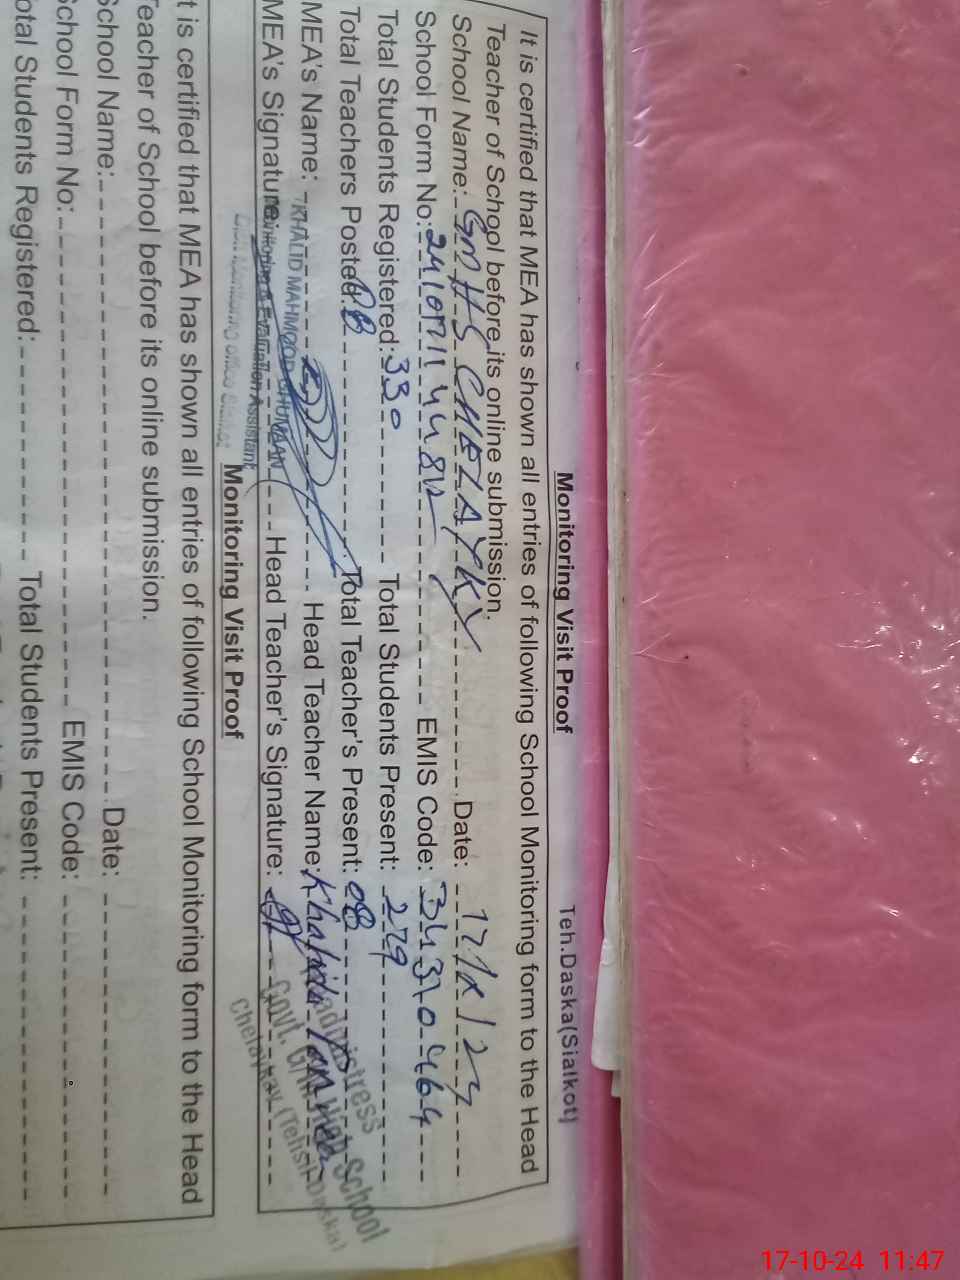 Teh.Daska(Sialkot)
Monitoring Visit Proof
It is certified that MEA has shown all entries of following School Monitoring form to the Head
Teacher of School before its online submission.
School Name: GMHS CHELAYKY Date: 17/X/24
School Form No: EMIS Code: 34370464
Total Students Registered: 330 Total Students Present: 279
Total Teachers Posted: 08 Total Teacher's Present: 08
MEA's Name: KHALID MAHMOOD GHUMAAN Head Teacher Name: Khalida
MEA's Signature: Monitoring & Evaluation Assistant Head Teacher's Signature:
Headmistress
Govt. Girls High School
Chelaykay (Tehsil Daska)
Monitoring Visit Proof
It is certified that MEA has shown all entries of following School Monitoring form to the Head
Teacher of School before its online submission.
School Name: Date:
School Form No: EMIS Code:
Total Students Registered: Total Students Present:
17-10-24 11:47